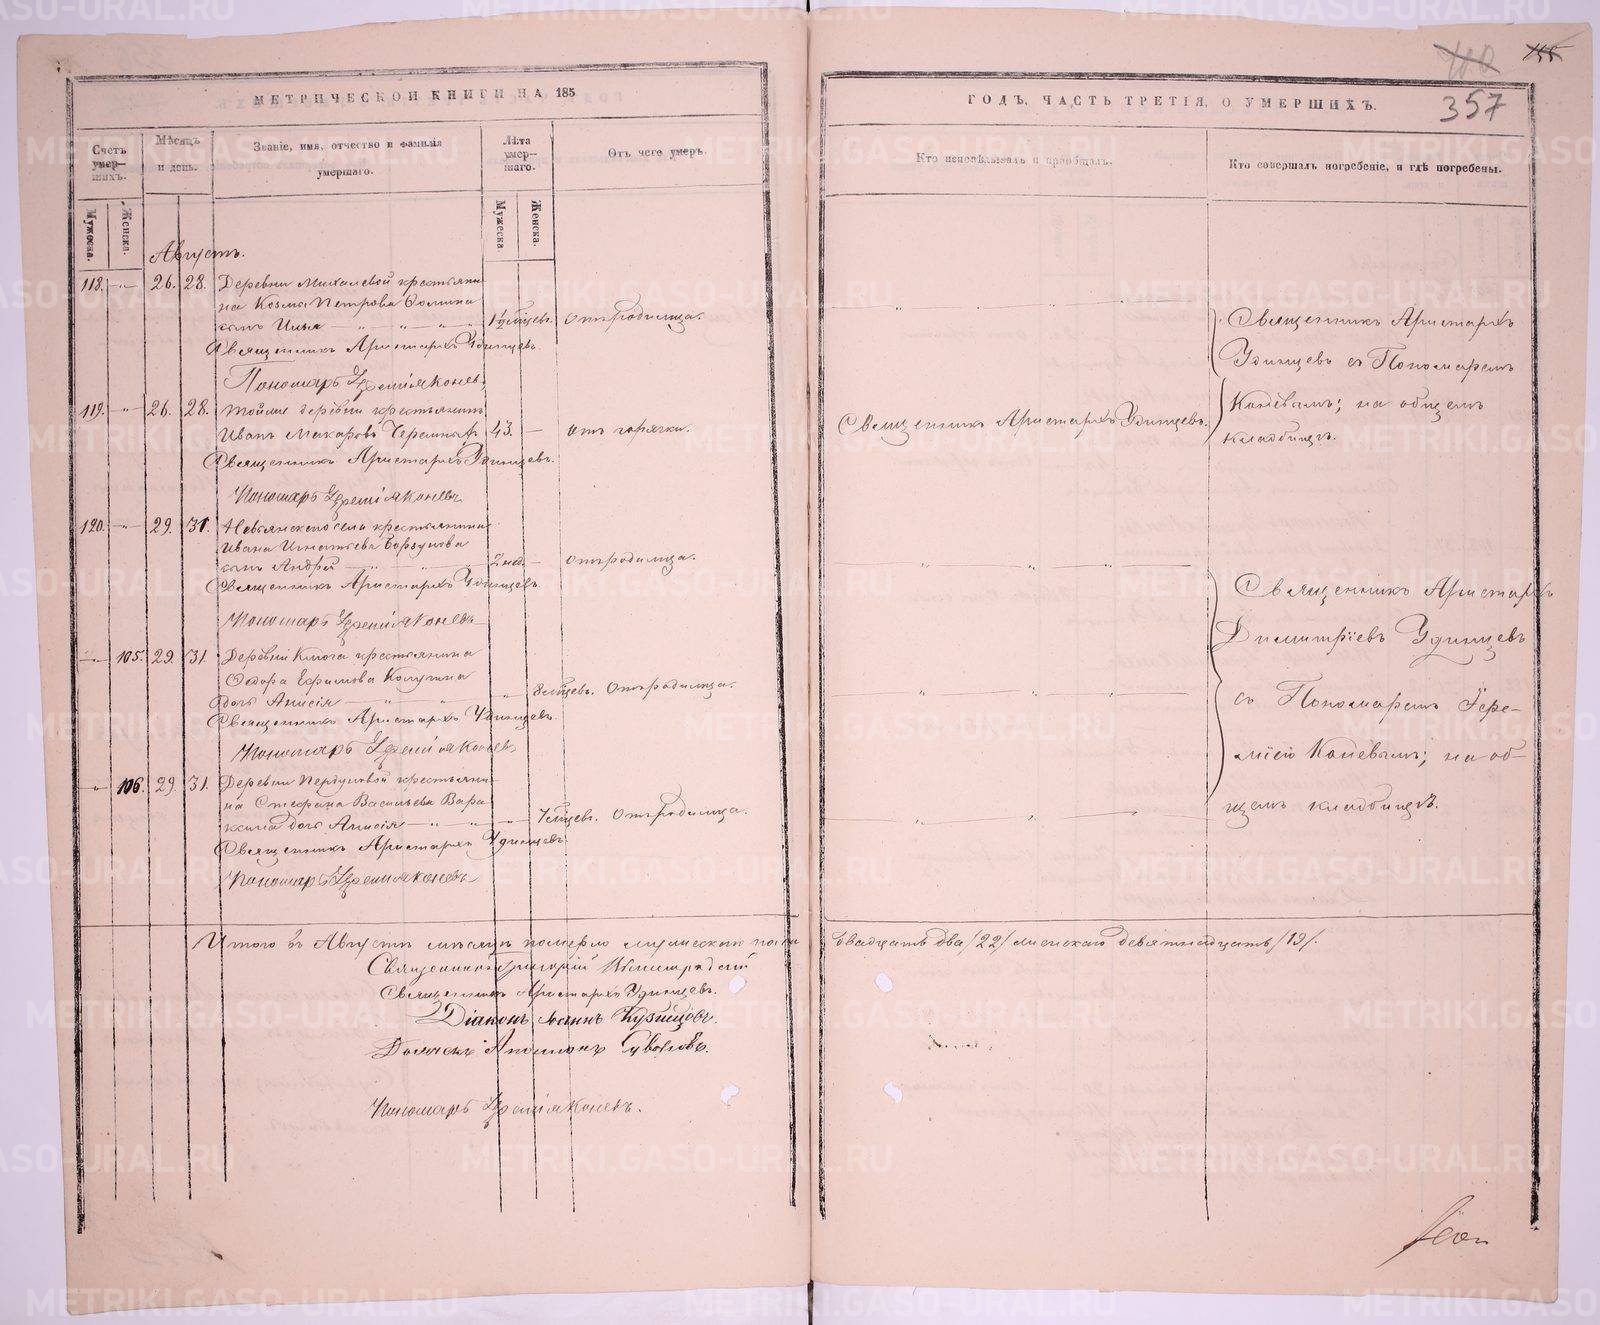 МЕТРИЧЕСКОЙ КНИГИ НА 185
ГОДЪ, ЧАСТЬ ТРЕТІЯ, О УМЕРШИХЪ.
357
Счетъ умер-шихъ.
Мѣсяцъ и день.
Званіе, имя, отчество и фамилія умершаго.
Лѣта умер-шаго.
Отъ чего умеръ.
Кто исповѣдывалъ и пріобщалъ.
Кто совершалъ погребеніе, и гдѣ погребены.
Мужеска.
Женска.
Мужеска
Женска.
Августъ.
118. 26. 28. Деревни Михалевой крестьяни-
на Козмы Петрова
сынъ Илья отъ родимца.
Священникъ Аристархъ Удинцевъ.
Пономарь Іеремія Коневъ
119. 26. 28. Тойже деревни крестьянинъ
Иванъ Макаровъ 43. отъ горячки. Священникъ Аристархъ Удинцевъ.
Священникъ Аристархъ Удинцевъ.
Пономарь Іеремія Коневъ
Священникъ Аристархъ
Удинцевъ съ Пономаремъ
Коневымъ; на общемъ
кладбищѣ.
120. 29. 31. Невьянскаго села крестьянина
Ивана Игнатьева
сынъ Андрей 2 нед. отъ родимца.
Священникъ Аристархъ Удинцевъ.
Пономарь Іеремія Коневъ
105. 29. 31. Деревни Ключа крестьянина
Ѳедора Ефимова
дочь Анисія отъ родимца.
Священникъ Аристархъ Удинцевъ.
Пономарь Іеремія Коневъ
106. 29. 31. Деревни крестьяни-
на Стефана Васильева Вара
ксина дочь Анисія отъ родимца.
Священникъ Аристархъ Удинцевъ
Пономарь Іеремія Коневъ
Священникъ Аристархъ
Димитріевъ Удинцевъ
съ Пономаремъ Іере-
міею Коневымъ; на об-
щемъ кладбищѣ.
Итого въ Августѣ мѣсяцѣ померло мужескаго пола двадцать два /22/ женскаго девятнадцать /19/.
Священникъ Григорій
Священникъ Аристархъ Удинцевъ.
Діаконъ Іоаннъ
Дьячекъ Аполлонъ
Пономарь Іеремія Коневъ.
METRIKI.GASO-URAL.RU